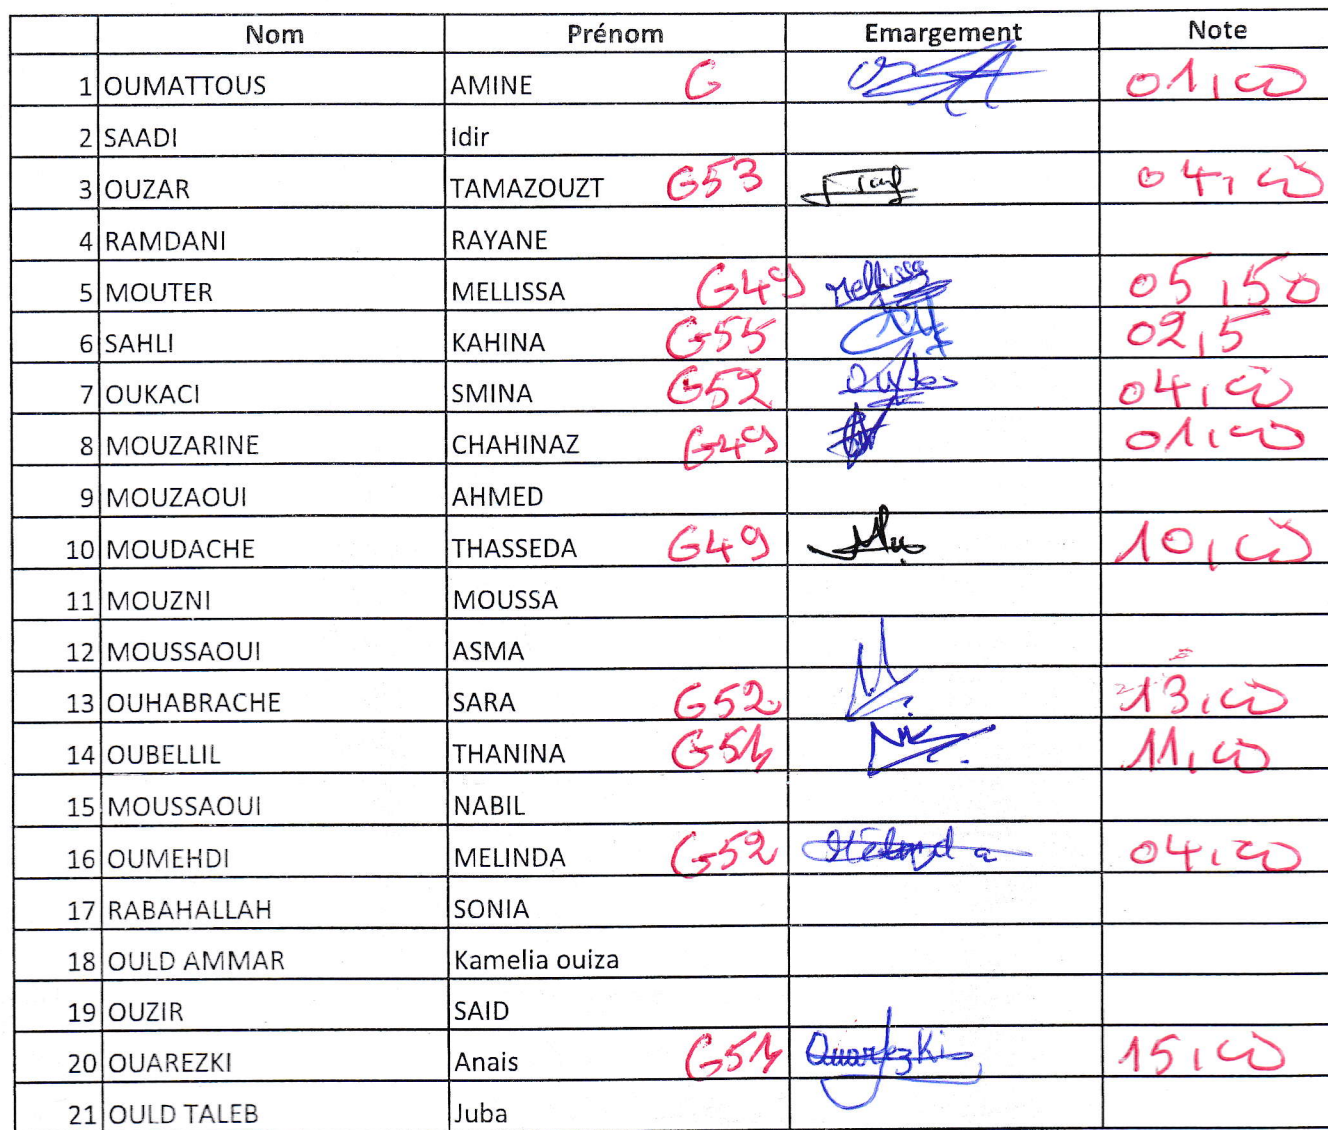 Nom Prénom Emargement Note
1 OUMATTOUS AMINE G 01,00
2 SAADI Idir
3 OUZAR TAMAZOUZT G53 04,00
4 RAMDANI RAYANE
5 MOUTER MELLISSA G49 Mellissa 05,50
6 SAHLI KAHINA G55 02,5
7 OUKACI SMINA G52 04,00
8 MOUZARINE CHAHINAZ G49 01,00
9 MOUZAOUI AHMED
10 MOUDACHE THASSEDA G49 10,00
11 MOUZNI MOUSSA
12 MOUSSAOUI ASMA
13 OUHABRACHE SARA G52 13,00
14 OUBELLIL THANINA G51 11,00
15 MOUSSAOUI NABIL
16 OUMEHDI MELINDA G52 04,00
17 RABAHALLAH SONIA
18 OULD AMMAR Kamelia ouiza
19 OUZIR SAID
20 OUAREZKI Anais G51 OuarezKi 15,00
21 OULD TALEB Juba